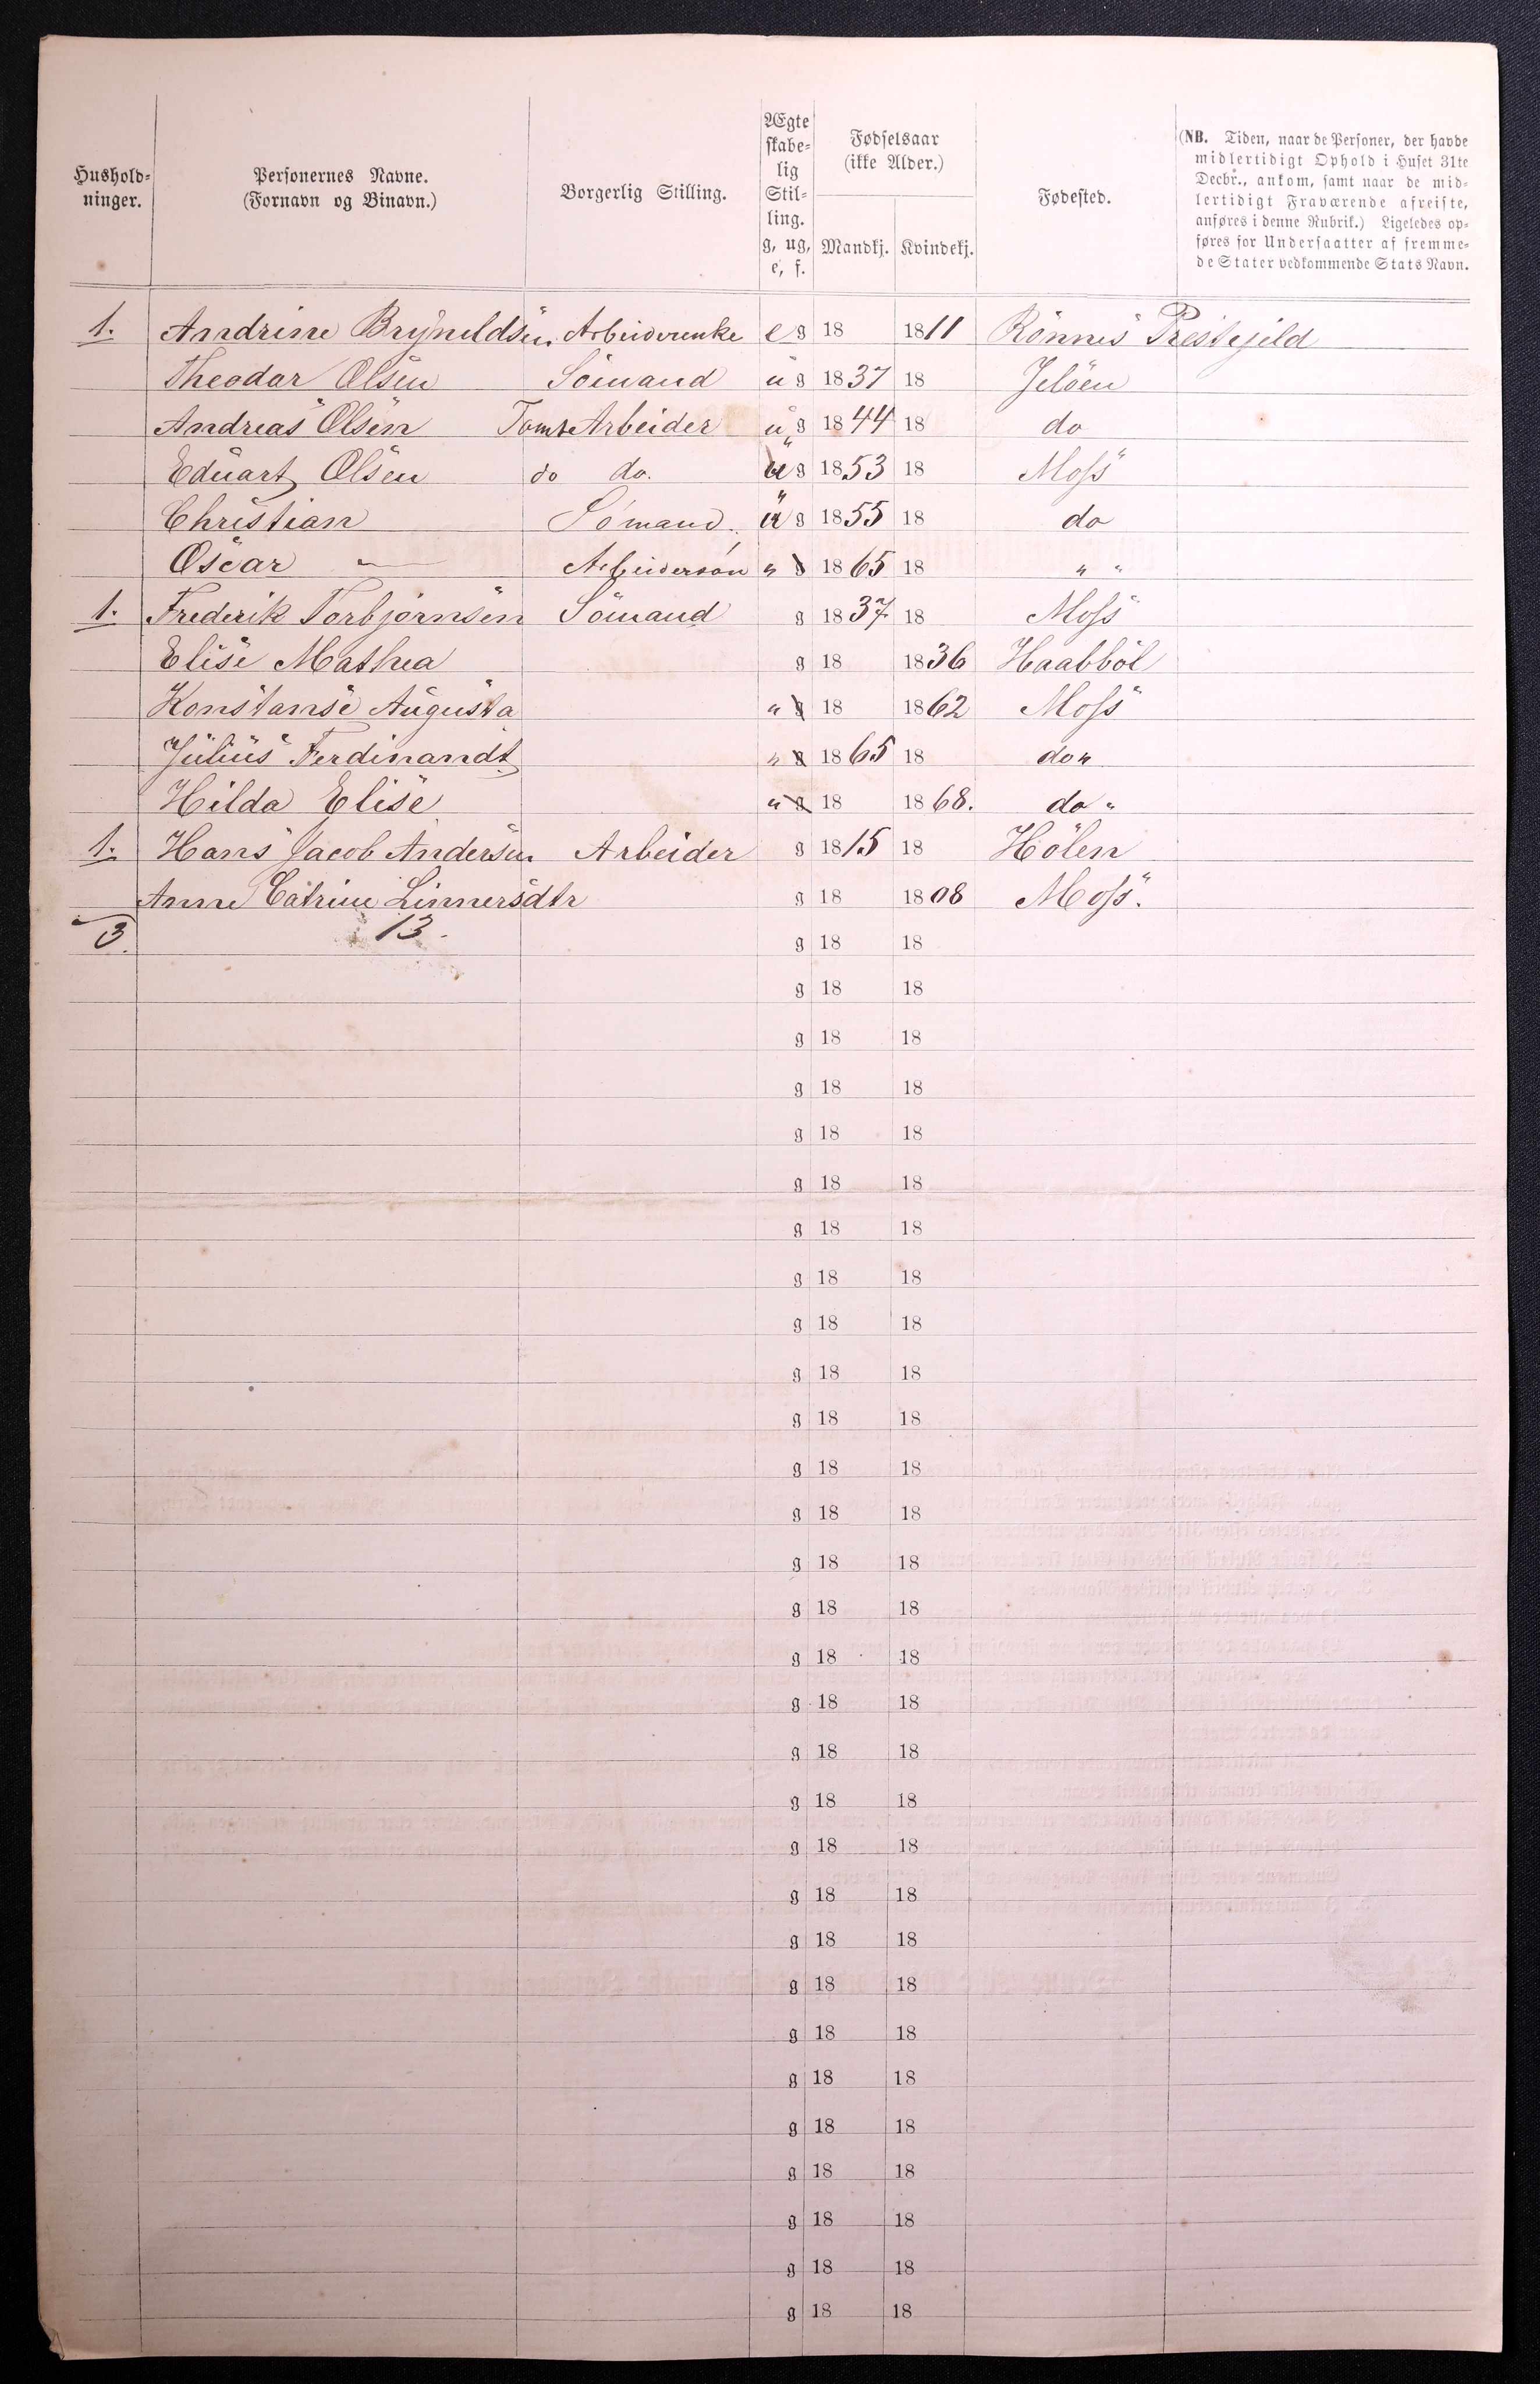 Hushold-
ninger.
Personernes Navne.
(Fornavn og Binavn.)
Borgerlig Stilling.
Ægte
skabe-
lig
Stil-
ling.
g, ug,
e, f.
Fødselsaar
(ikke Alder.)
Mandkj.
Kvindekj.
Fødested.
(NB. Tiden, naar de Personer, der havde
midlertidigt Ophold i Huset 31te
Decbr., ankom, samt naar de mid-
lertidigt Fraværende afreiste,
anføres i denne Rubrik.) Ligeledes op-
føres for Undersaatter af fremme-
de Stater vedkommende Stats Navn.
1. Andrine Brynildsen Arbeiderenke e g 18 1811 Rönnes Prestejeld
Theodor Olsen Sömand u g 1837 18 Jelöen
Andreas Olsen Tomt Arbeider u g 1844 18 do
Eduart Olsen do do. u g 1853 18 Moss
Christian Sömand. u g 1855 18 do
Oscar — Arbeidersön " g 1865 18 " "
1. Frederik Torbjörnsen Sömand g 1837 18 Moss
Elise Mathea g 18 1836 Haabböl
Konstanse Augusta " g 18 1862 Moss
Julius Ferdinandt " g 1865 18 do "
Hilda Elise " g 18 1868. do "
1. Hans Jacob Andersen Arbeider g 1815 18 Hölen
Anne Catrine Linnersdtr g 18 1808 Moss.
3. 13. g 18 18
g 18 18
g 18 18
g 18 18
g 18 18
g 18 18
g 18 18
g 18 18
g 18 18
g 18 18
g 18 18
g 18 18
g 18 18
g 18 18
g 18 18
g 18 18
g 18 18
g 18 18
g 18 18
g 18 18
g 18 18
g 18 18
g 18 18
g 18 18
g 18 18
g 18 18
g 18 18
g 18 18
g 18 18
g 18 18